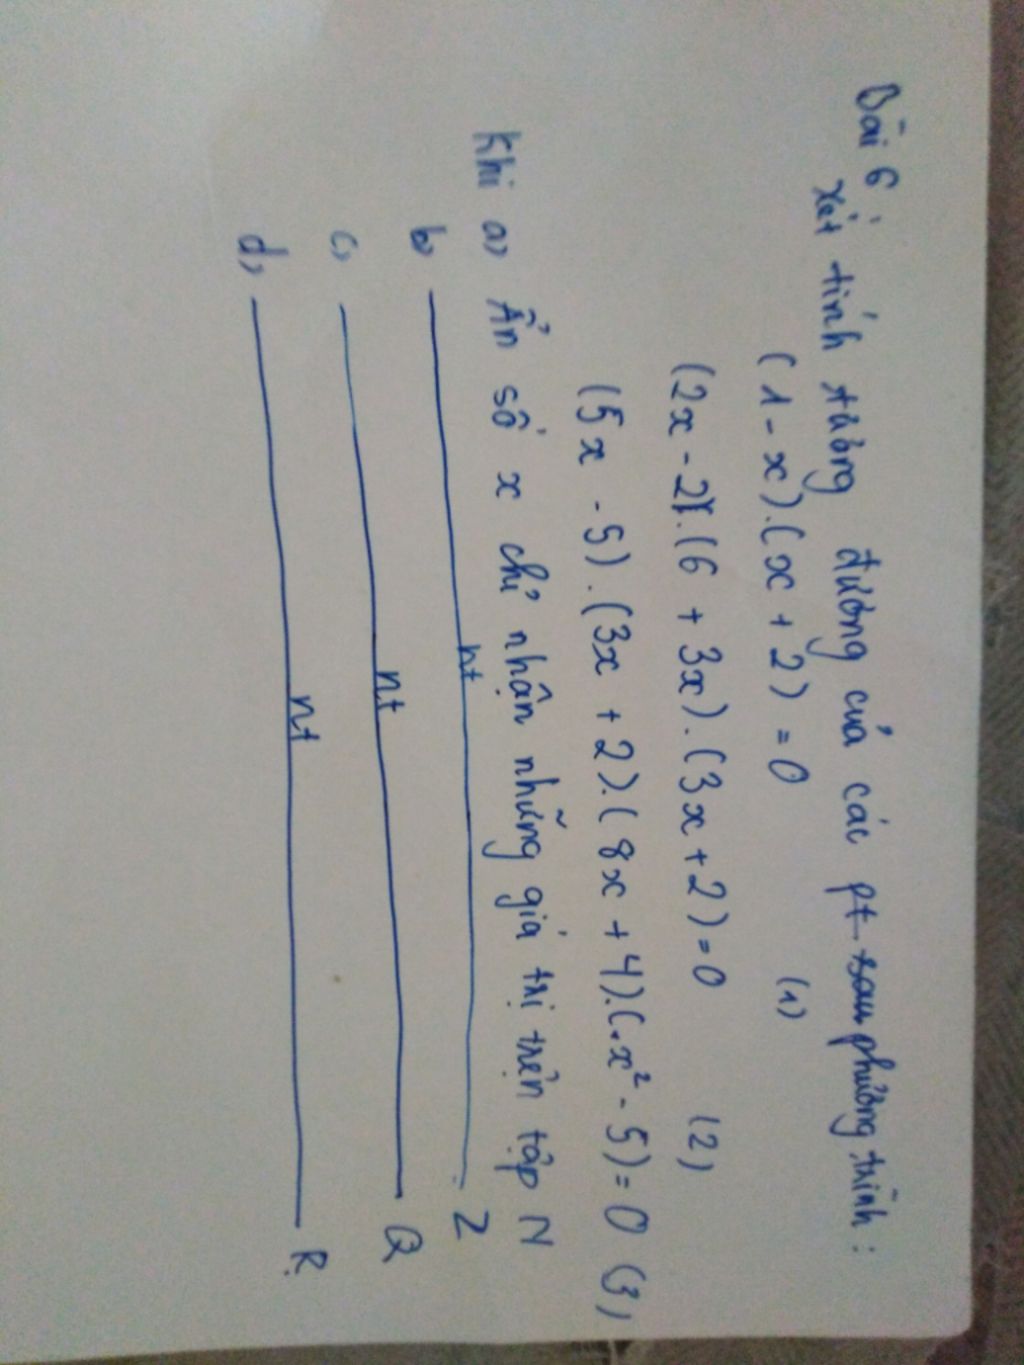 Bài 6: Xét tính tương đương của các pt sau phương trình:
(1 - x).(x + 2) = 0 (1)
(2x - 2).(6 + 3x).(3x + 2) = 0 (2)
(5x - 5).(3x + 2).(8x + 4).(x² - 5) = 0 (3)
Khi a, Ẩn số x chỉ nhận những giá trị trên tập N
b, nt Z
c, nt Q
d, nt R